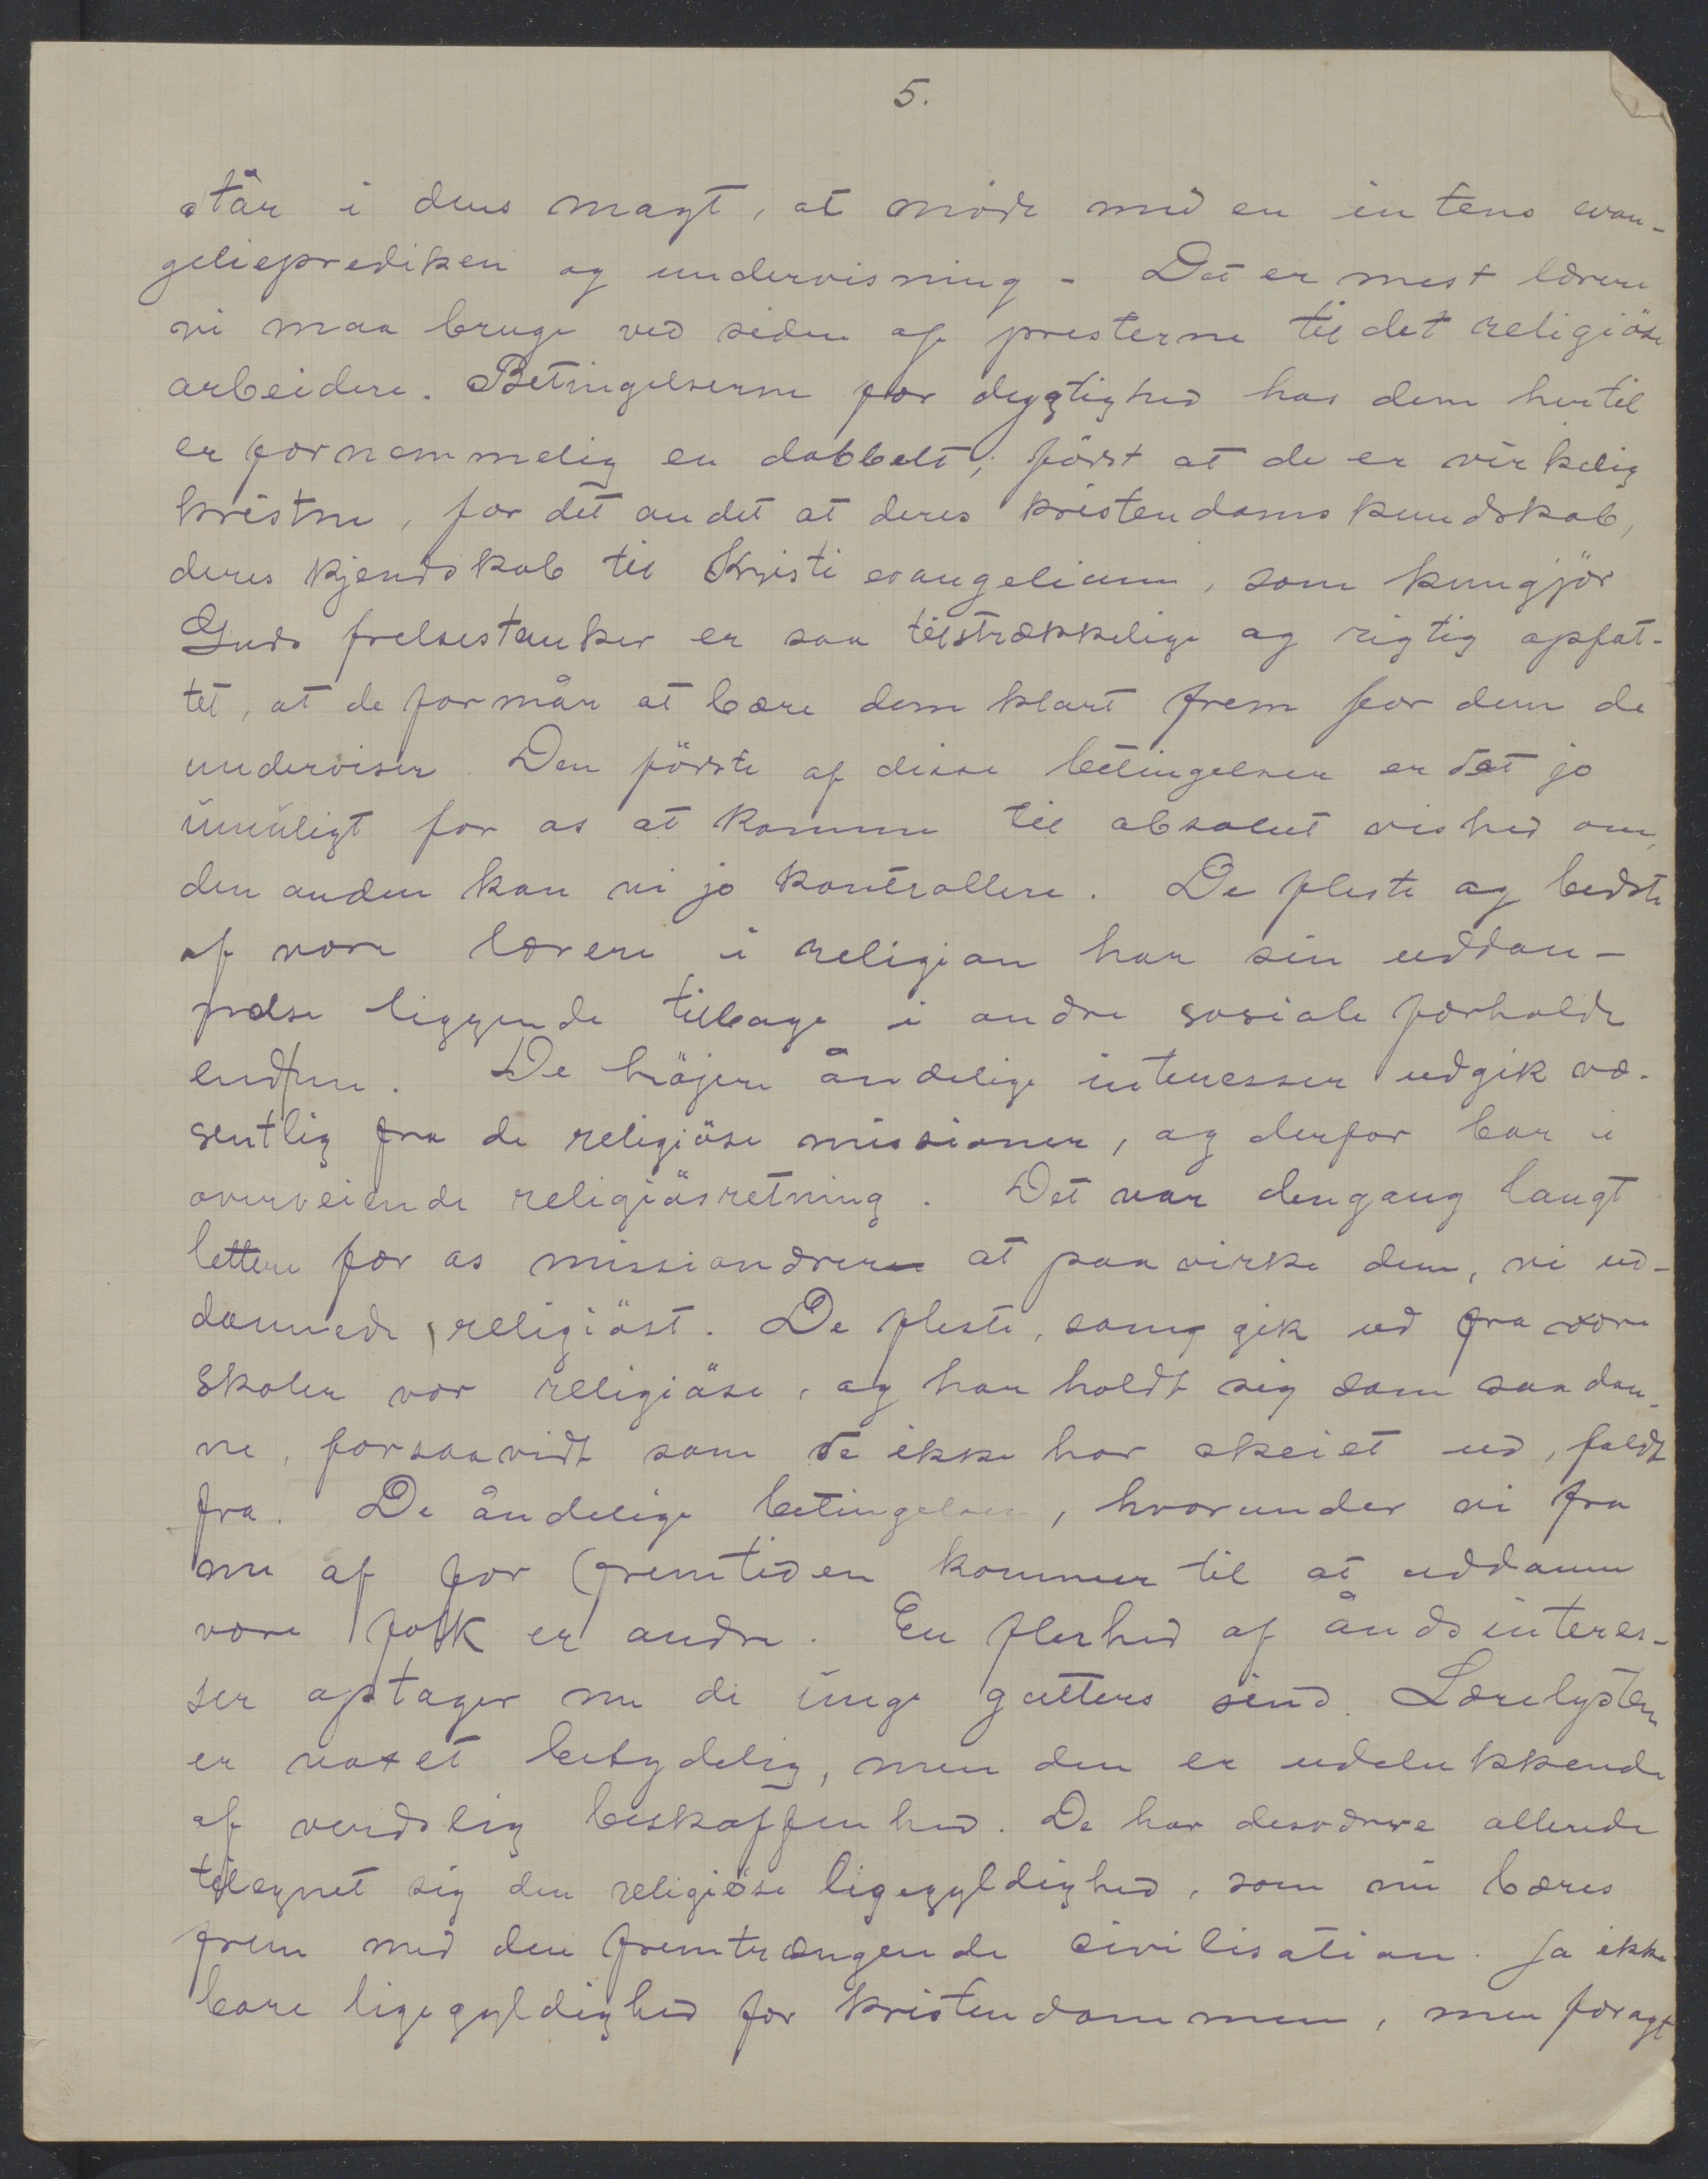 5.
står i dens magt, at möde med en intens evan-
gelieprediken og undervisning - Det er mest lærere
vi maa bruge ved siden af presterne til det religiöse
arbeidere. Betingelserne for dygtighed hos dem hertil
er fornemmelig en dobbelt; först at de er virkelig
kristne, for det andet at deres kristendomskundskab,
deres kjendskab til Kristi evangelium, som kungjör
Guds frelsestanker er saa tilstrækkelige og rigtig opfat-
tet, at de formår at bære dem klart frem for dem de
underviser Den förste af disse betingelser er det jo
ŭmŭligt for os at komme til absolut vished om,
den anden kan vi jo kontrollere. De fleste og bedste
af vore lærere i religion har sin uddan-
nelse liggende tilbage i andre sosiale forholde
end nu. De höjere åndelige interesser udgik væ-
sentlig fra de religiöse missioner, og derfor bar i
overveiende religiösretning. Det var dengang langt
lettere for os missionærer at paavirke dem, vi ud-
dannede, religiöst. De fleste, som gik ud fra vore
skoler var religiöse, og har holdt sig som saadan-
ne, forsaavidt som de ikke har skeiet ud, faldt
fra. De åndelige betingelser, hvorunder vi fra
nu af for fremtiden kommer til at uddanne
vore folk er andre. En flerhed af åndsinteres-
ser optager nu de ŭnge gutters sind. Lærelysten
er voxet betydelig, men den er udelukkende
af verdslig beskaffenhed. De har desværre allerede
tilegnet sig den religiöse ligegyldighed, som nŭ bæres
frem med den fremtrængende civilisation. Ja ikke
bare ligegyldighed for kristendommen, men foragt